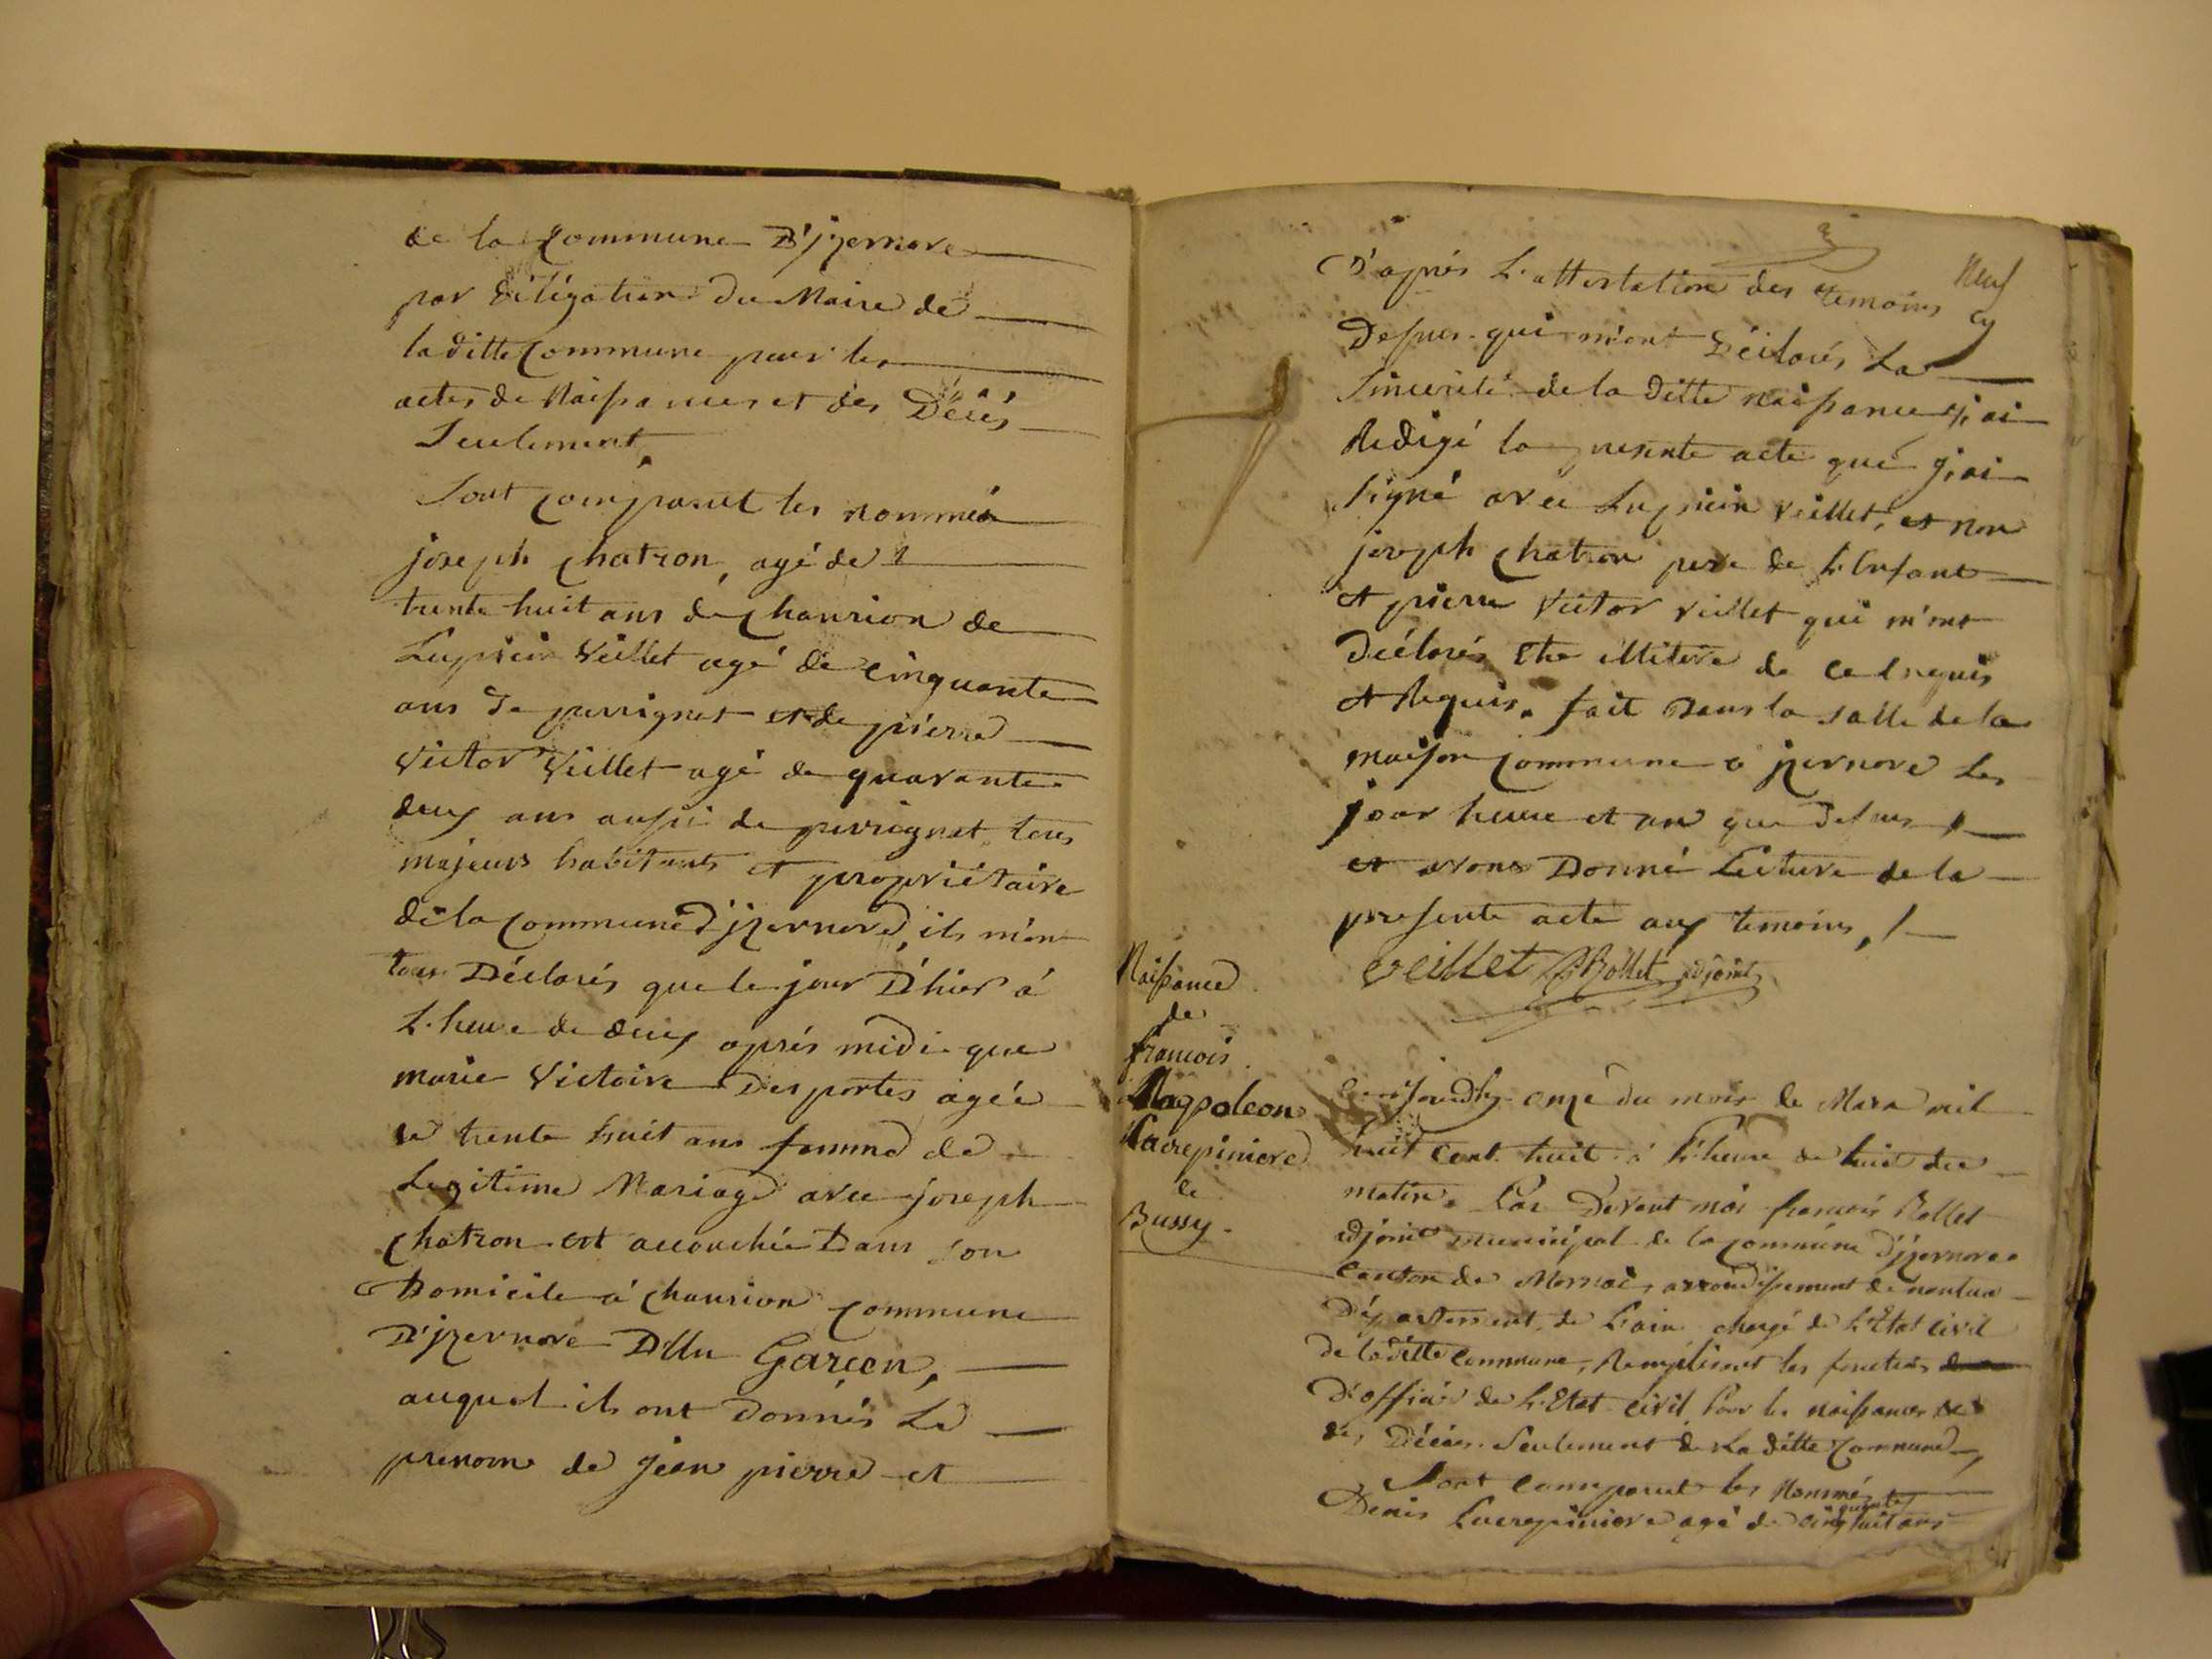 de la Commune D'jzernore
par délégation du Maire de
la ditte Commune pour les
actes de Naissances et des Décés
Seulement,
Sont comparut les nommés
joseph chatron, agé de
trente huit ans de chaurion de
Lupicin Veillet agé de cinquante
ans de perrignat et de piérre
Victor Veillet agé de quarante
deux ans aussi de perrignat tous
majeurs habitants et propriétaire
de la Commune d'jzernore, ils m'on
tous Déclarés que le jour D'hier á
L'heure de deux aprés midi que
marie Victoire Desportes agée
de trente huit ans femme de
Legitime Mariage avec joseph
chatron est accouchée Dans son
Domicile á chaurion commune
D'jzernore D'Un Garçon,
auquel ils ont donnés Le
prenom de jean pierre et
Neuf
D'aprés L'attestation des temoins cy
Dessus qui m'ont Déclarés La
Sincerité de la ditte naissance j'ai
Redigé la presente acte que j'ai
Signé avec Lupicin Veillet, et non
joseph chatron pere de L'Enfant
et pierre Victor Veillet qui m'ont
Déclarés Etre illitere de ce Enquis
et Requis. fait Dans la salle de la
maison commune a jzernore Les
jour heure et an que dessus
et avons Donné Lecture de la
presente acte aux temoins,
Veillet Bollet adjoint
Naissance
de
francois
Nagpoleon
Lacrepiniere
de
Bussy.
onze du mois de Mars mil
huit cent huit á L'heure de huit du
matin. Par Devant moi francois Bollet
adjoint municipal de la Commune d'jzernore
Canton de Mornai, arrondissement de nantua
Département de L'ain chargé de L'Etat civil
de laditte Commune, Remplissant les fonctions
D'officier de L'Etat civil Pour les naissances et
des Décés Seulement de La ditte Commune,
Sont Comparut les Nommés
Denis Lacrepiniere agé de cinquante huit ans